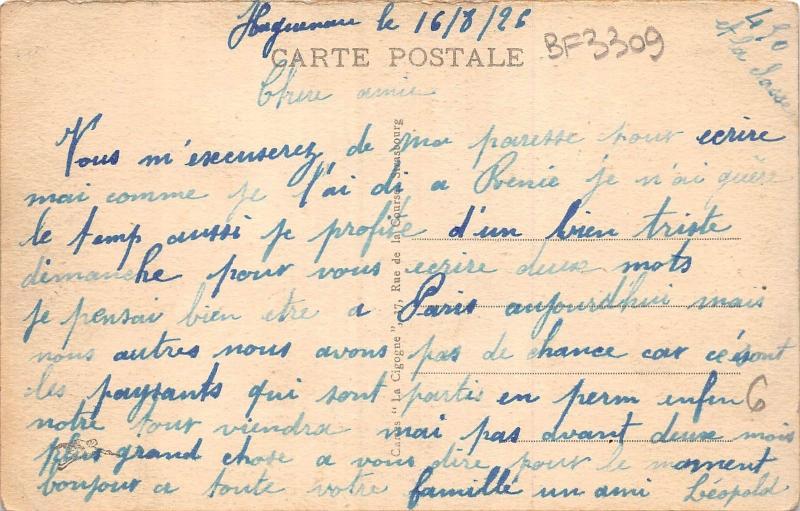 Haguenau le 16/8/26
CARTE POSTALE
BF3309
450
et la
Chere amie
Vous m'excuserez de ma paresse pour ecrire
mai comme je l'ai di a Renie je n'ai guère
le temp aussi je profite d'un bien triste
dimanche pour vous ecrire deux mots
je pensai bien etre a Paris aujourdhui mais
nous autres nous avons pas de chance car ce sont
les paysants qui sont partis en perm enfin
6
notre tour viendra mai pas avant deux mois
plus grand chose a vous dire pour le moment
bonjour a toute votre famille un ami Léopold
Cartes "La Cigogne", 17, Rue de la Course, Strasbourg